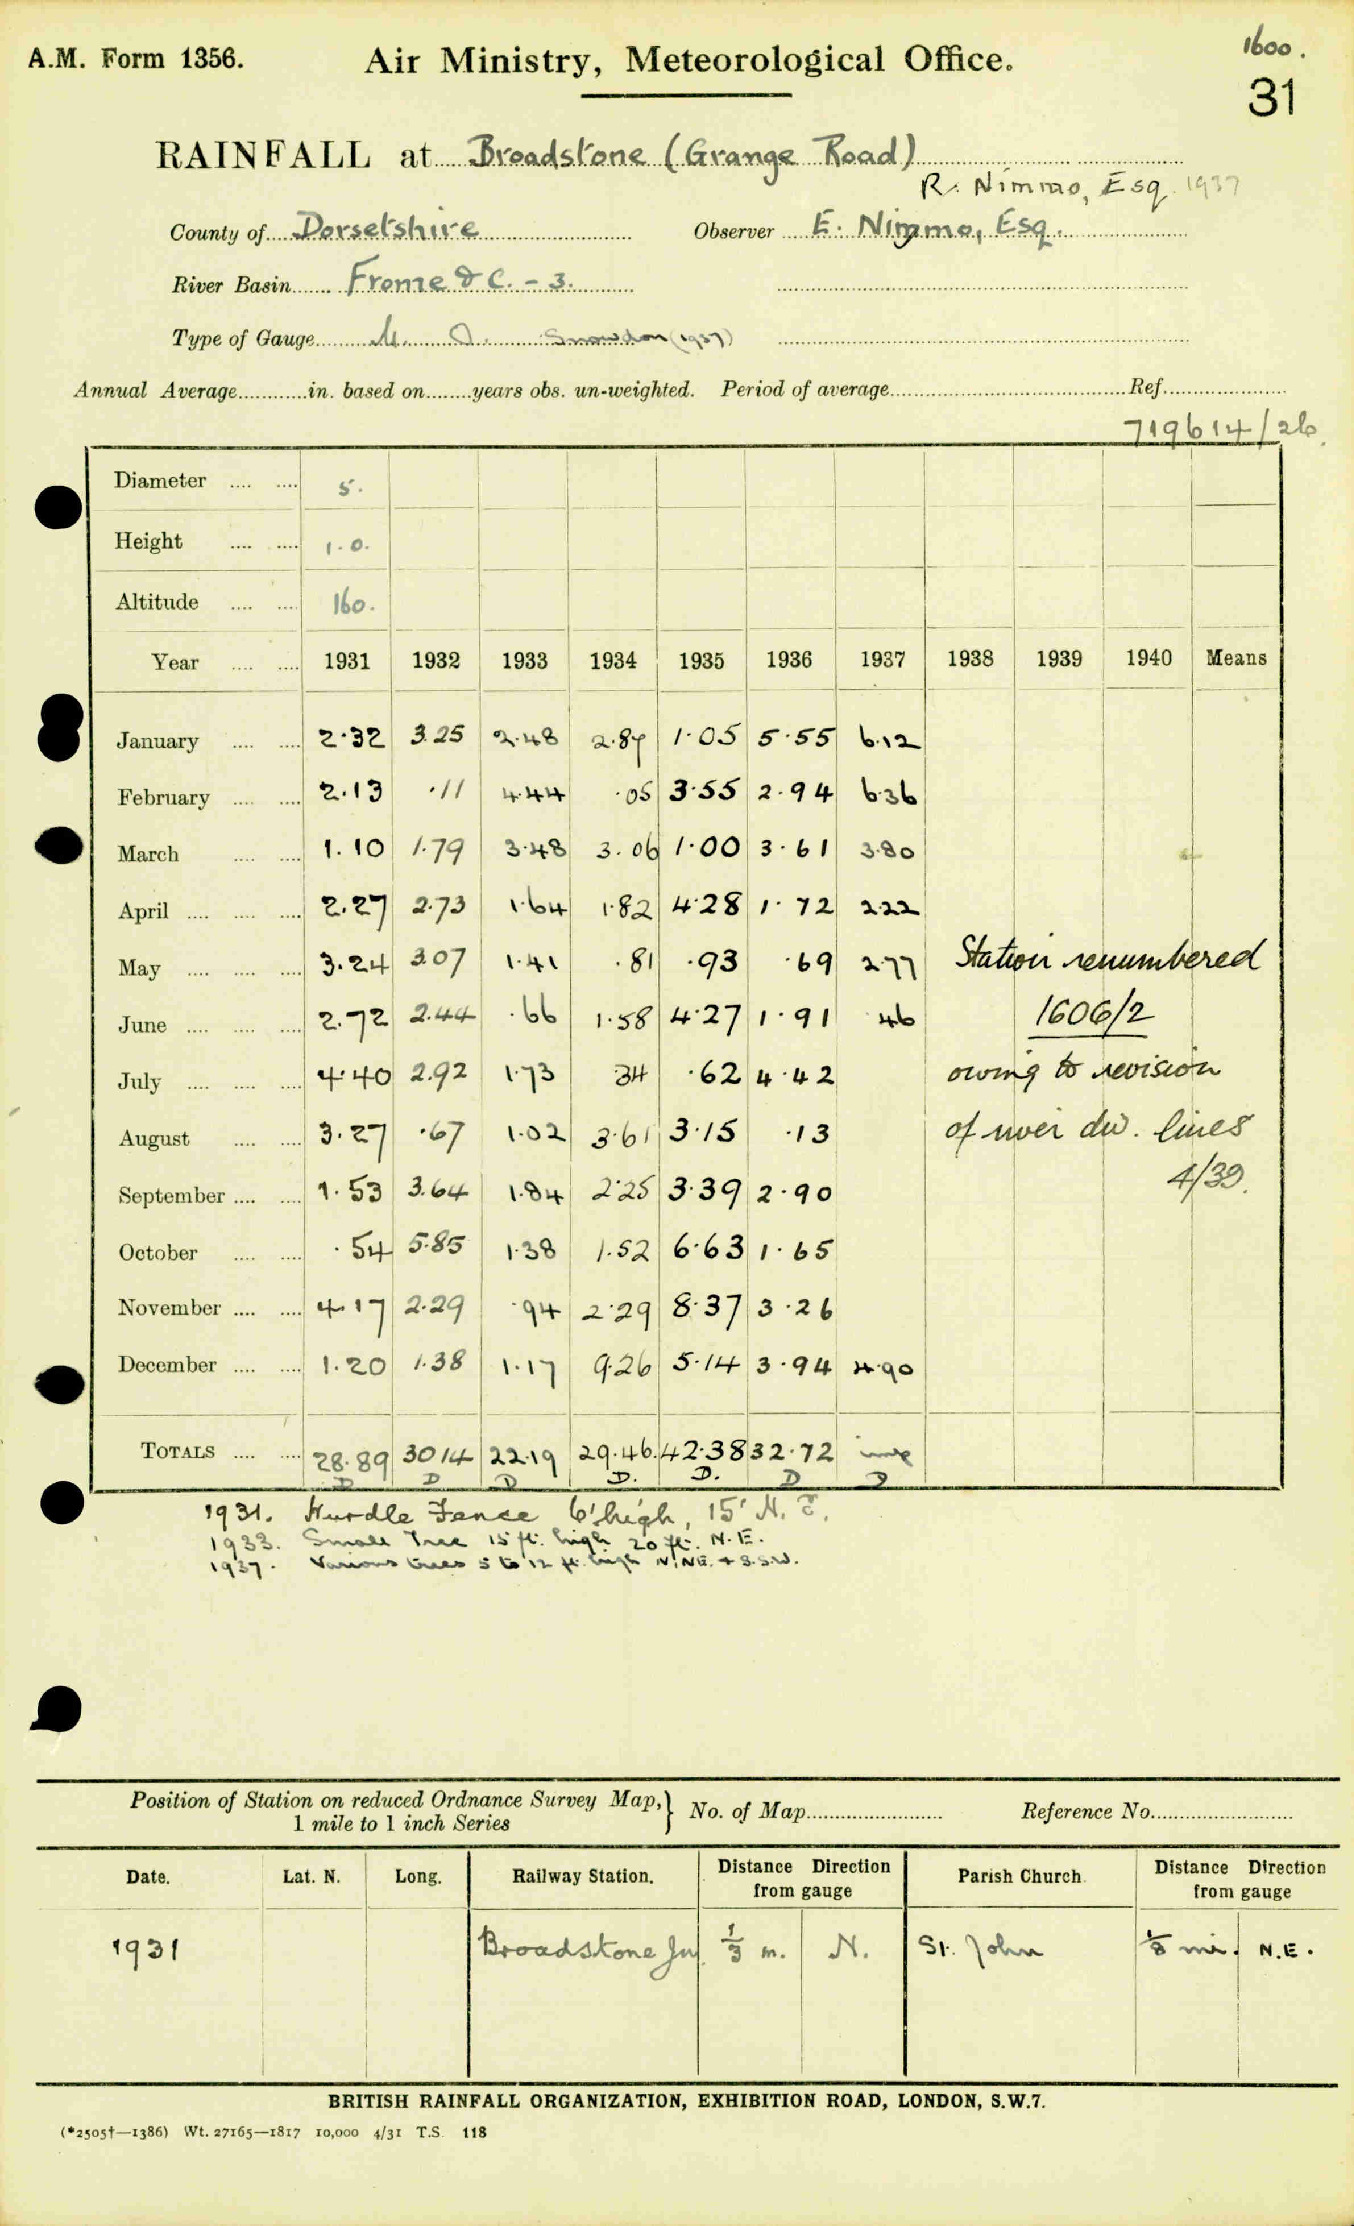 1600.
A.M. Form 1356. Air Ministry, Meteorological Office.
31
RAINFALL at Broadstone (Grange Road)
R. Nimmo, Esq 1937
County of Dorsetshire Observer E. Nimmo, Esq.
River Basin Frome &c. - 3.
Type of Gauge M. O. Snowdon (1937)
Annual Average in. based on years obs. un-weighted. Period of average Ref.
719614/26.
Diameter 5.
Height 1.0.
Altitude 160.
Year 1931 1932 1933 1934 1935 1936 1937 1938 1939 1940 Means
January 2.32 3.25 2.48 2.87 1.05 5.55 6.12
February 2.13 .11 4.44 .05 3.55 2.94 6.36
March 1.10 1.79 3.48 3.06 1.00 3.61 3.80
April 2.27 2.73 1.64 1.82 4.28 1.72 2.22
May 3.24 3.07 1.41 .81 .93 .69 2.77 Station renumbered
June 2.72 2.44 .66 1.58 4.27 1.91 46 1606/2
July 4.40 2.92 1.73 34 .62 4.42 owing to revision
August 3.27 .67 1.02 3.61 3.15 .13 of river div. lines
September 1.53 3.64 1.84 2.25 3.39 2.90 4/39.
October .54 5.85 1.38 1.52 6.63 1.65
November 4.17 2.29 .94 2.29 8.37 3.26
December 1.20 1.38 1.17 9.26 5.14 3.94 4.90
TOTALS 28.89 30 14 22.19 29.46. 42.38 32.72
D D D D. D. D D
1931. Hurdle Fence 6' high, 15' N. E.
1933. Small Tree 15 ft. high 20 ft. N.E.
1937. Various trees 5 to 12 ft. high N, NE. + S.S.W.
Position of Station on reduced Ordnance Survey Map, } No. of Map Reference No.
1 mile to 1 inch Series
Date. Lat. N. Long. Railway Station. Distance Direction from gauge Parish Church Distance Direction from gauge
1931 Broadstone Jn 1/3 m. N. St. John 1/8 mi. N.E.
BRITISH RAINFALL ORGANIZATION, EXHIBITION ROAD, LONDON, S.W.7.
(*2505†—1386) Wt. 27165—1817 10,000 4/31 T.S. 118